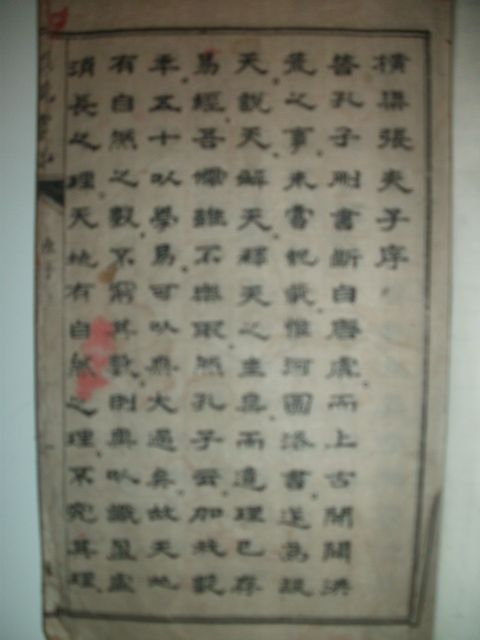 橫渠張夫子序
昔孔子刪書斷自唐虞而上古開闢洪
荒之事未嘗記載惟河圖洛書遂為談
天說天解天釋天之主而遺理已存
易經吾儒誰不樂取然孔子云加我數
年五十以學易可以無大過矣故天地
有自然之數不窮其數則無以識盈虛
消長之理天地有自然之理不究其理